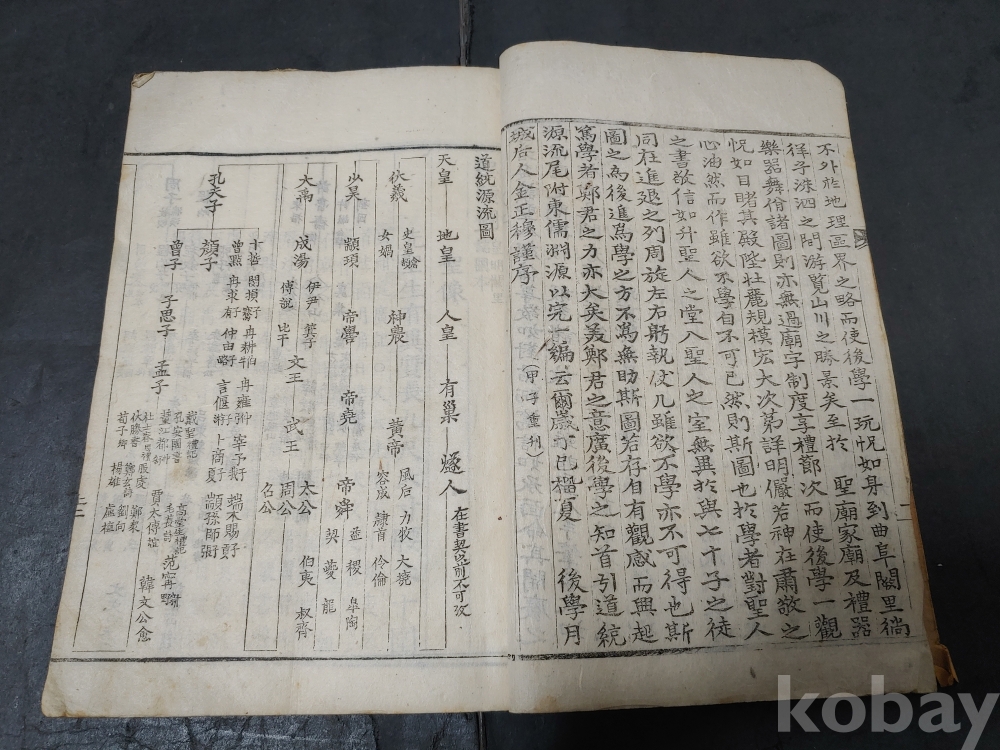 不外於地理區界之略而使後學一玩怳如身到曲阜闕里徜
徉乎洙泗之間游覽山川之勝景矣至於 聖廟家廟及禮器
樂器舞佾諸圖則亦無過廟宇制度享禮節次而使後學一觀
怳如目睹其殿陛壯麗規模宏大次第詳明儼若神在肅敬之
心油然而作雖欲不學自不可已然則斯圖也於學者對聖人
之書敬信如升聖人之堂入聖人之室無異於與七十子之徒
同在進退之列周旋左右躬執仗几雖欲不學亦不可得也斯
圖之為後進為學之方不為無助斯圖若存自有觀感而興起
篤學者鄭君之力亦大矣美鄭君之意廣後學之知首引道統
源流尾附東儒淵源以完一編云爾歲丁巳榴夏 後學月
城后人金正穆謹序 (甲子重刊)
道統源流圖
天皇 地皇 人皇 有巢 燧人 在書契以前不可攷
伏羲 史皇倉頡 女媧 神農 黃帝 風后 力牧 大撓 容成 隸首 伶倫
少昊 顓頊 帝嚳 帝堯 帝舜 益 稷 皋陶 契 夔 龍
大禹 成湯 伊尹 萁子 傅說 比干 文王 武王 太公 周公 召公 伯夷 叔齊
孔夫子
十哲 閔損子騫 冉耕伯牛 冉雍仲弓 宰予子我 端木賜子貢
曾點 冉求子有 仲由子路 言偃子游 卜商子夏 顓孫師子張
顏子
曾子 子思子 孟子
戴聖禮記 高堂生禮記 范甯
孔安國書 毛萇詩
董江都 賈太傅誼 韓文公愈
杜士春 服虔 鄭衆
伏勝書 鄭玄 劉向
荀子卿 楊雄 盧植
kobay